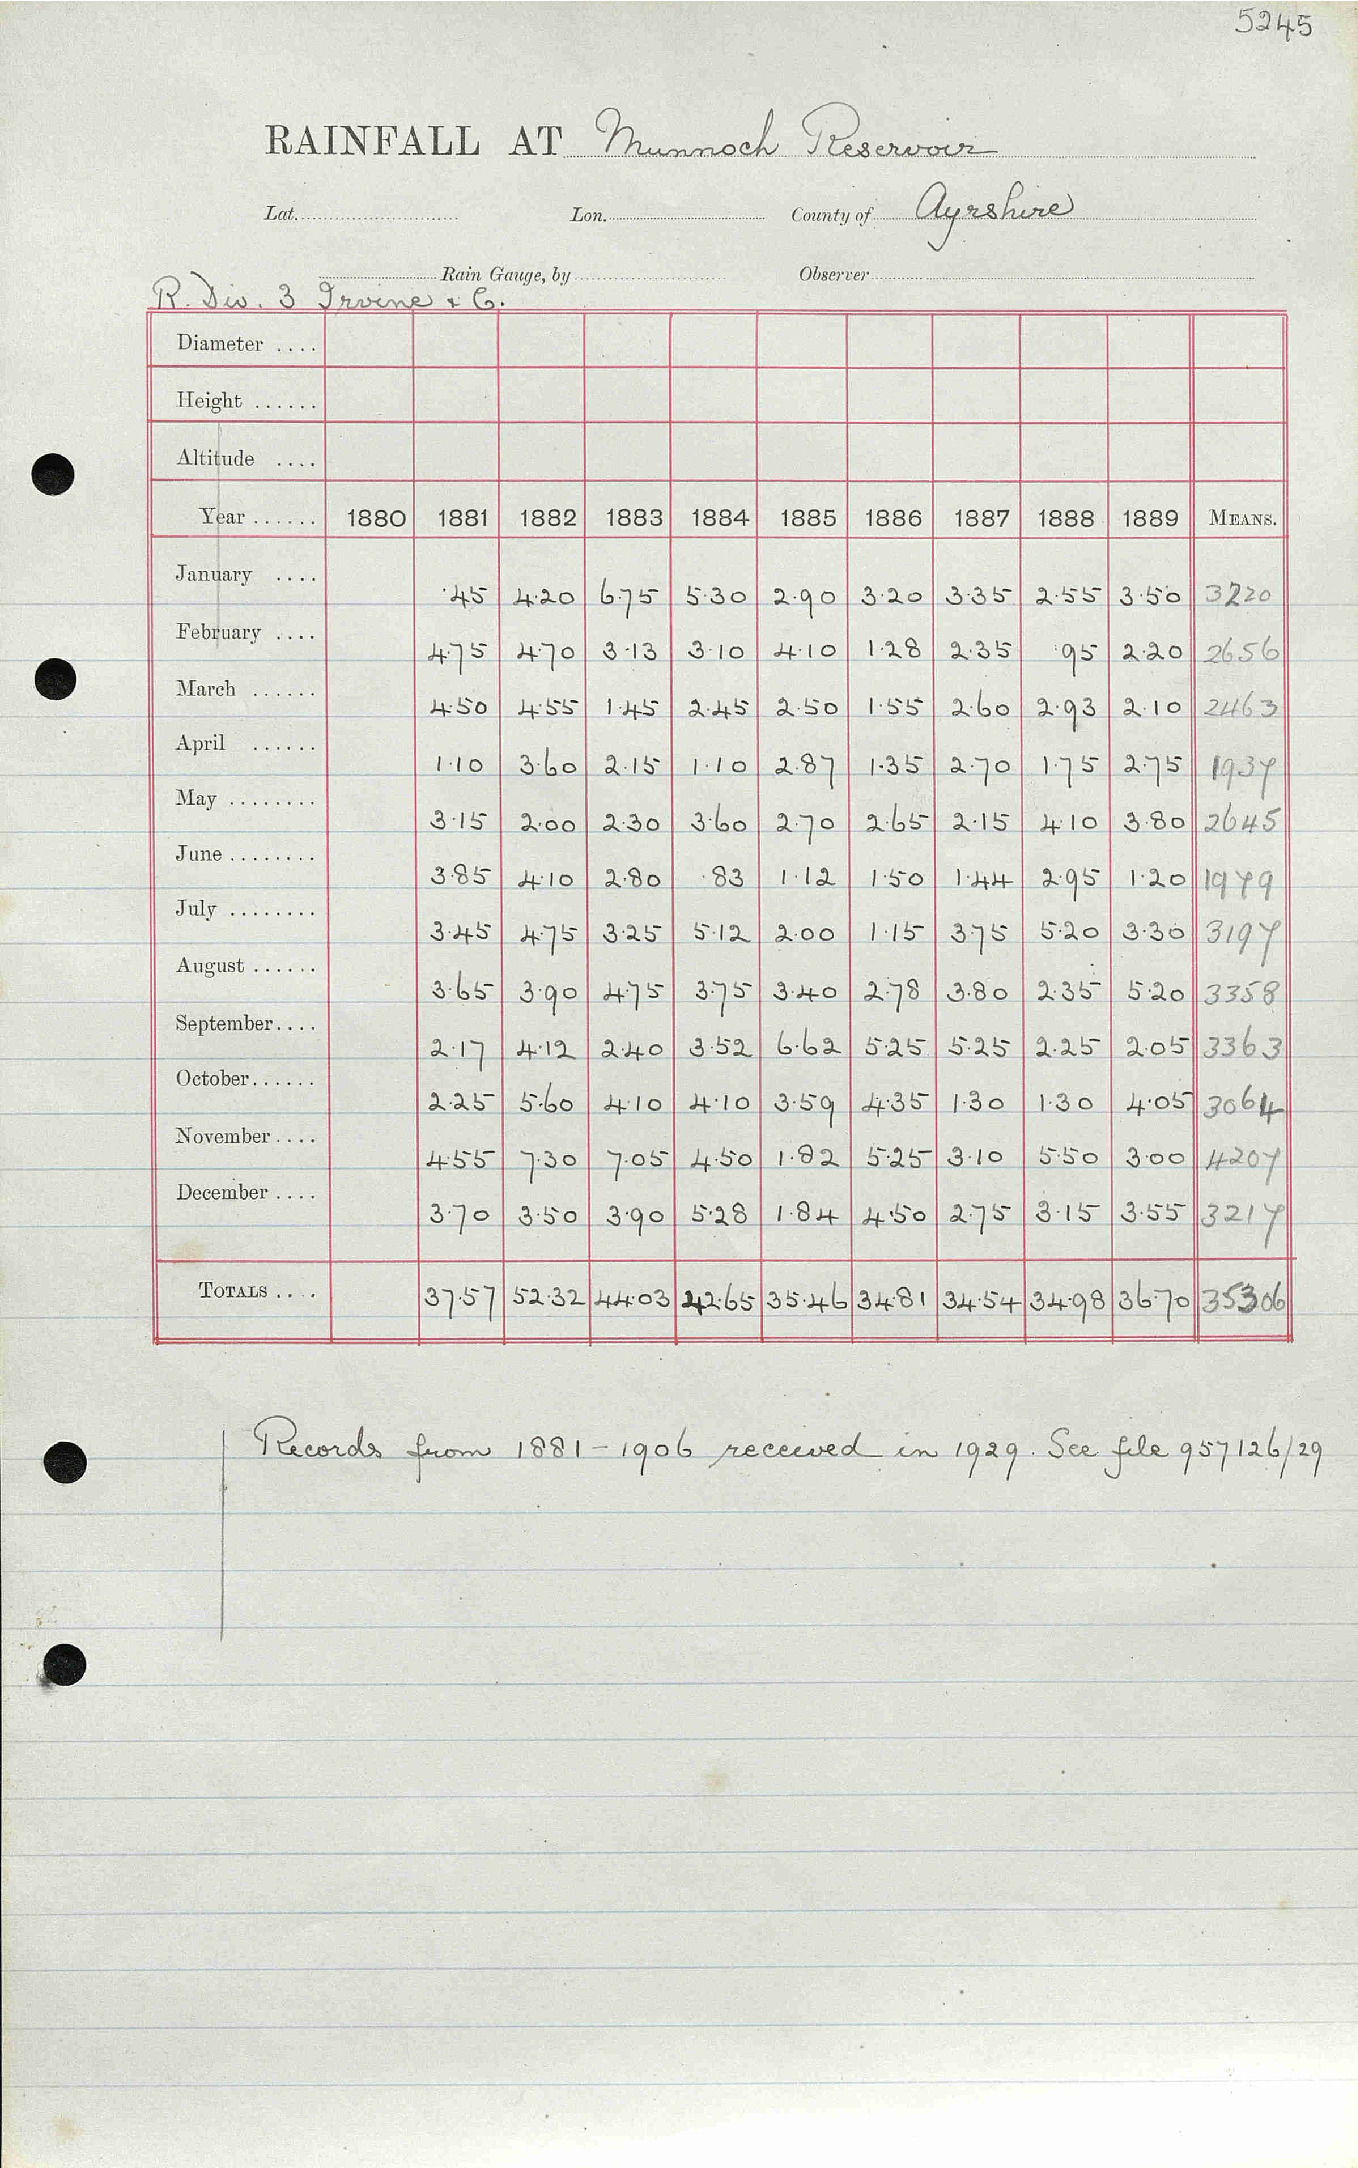 5245
RAINFALL AT Munnoch Reservoir
Lat. Lon. County of Ayrshire
Rain Gauge, by Observer
R. Div. 3 Irvine & C.
Diameter ....
Height ......
Altitude ....
Year ...... 1880 1881 1882 1883 1884 1885 1886 1887 1888 1889 MEANS.
January .... ·45 4·20 6·75 5·30 2·90 3·20 3·35 2·55 3·50 3220
February .... 4·75 4·70 3·13 3·10 4·10 1·28 2·35 ·95 2·20 2656
March ...... 4·50 4·55 1·45 2·45 2·50 1·55 2·60 2·93 2·10 2463
April ...... 1·10 3·60 2·15 1·10 2·87 1·35 2·70 1·75 2·75 1937
May ........ 3·15 2·00 2·30 3·60 2·70 2·65 2·15 4·10 3·80 2645
June ........ 3·85 4·10 2·80 ·83 1·12 1·50 1·44 2·95 1·20 1979
July ........ 3·45 4·75 3·25 5·12 2·00 1·15 3·75 5·20 3·30 3197
August ...... 3·65 3·90 4·75 3·75 3·40 2·78 3·80 2·35 5·20 3358
September.... 2·17 4·12 2·40 3·52 6·62 5·25 5·25 2·25 2·05 3363
October...... 2·25 5·60 4·10 4·10 3·59 4·35 1·30 1·30 4·05 3064
November .... 4·55 7·30 7·05 4·50 1·82 5·25 3·10 5·50 3·00 4207
December .... 3·70 3·50 3·90 5·28 1·84 4·50 2·75 3·15 3·55 3217
TOTALS .... 37·57 52·32 44·03 42·65 35·46 34·81 34·54 34·98 36·70 35306
Records from 1881-1906 received in 1929. See file 957126/29